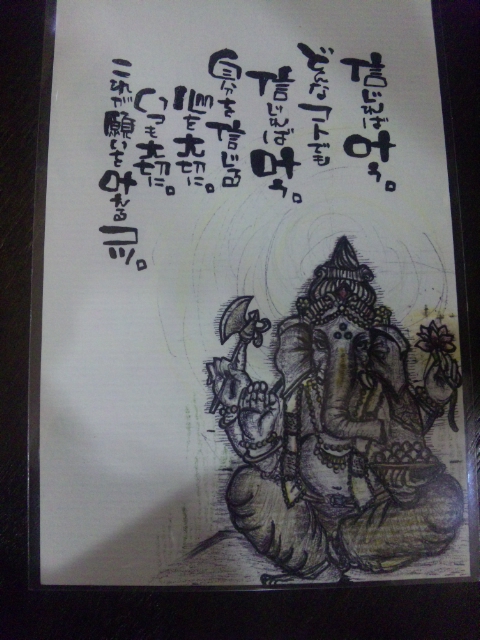 信じれば叶う。
どんなコトでも
信じれば叶う。
自分を信じる
心を大切に。
いつも大切に。
これが願いを叶えるコツ。